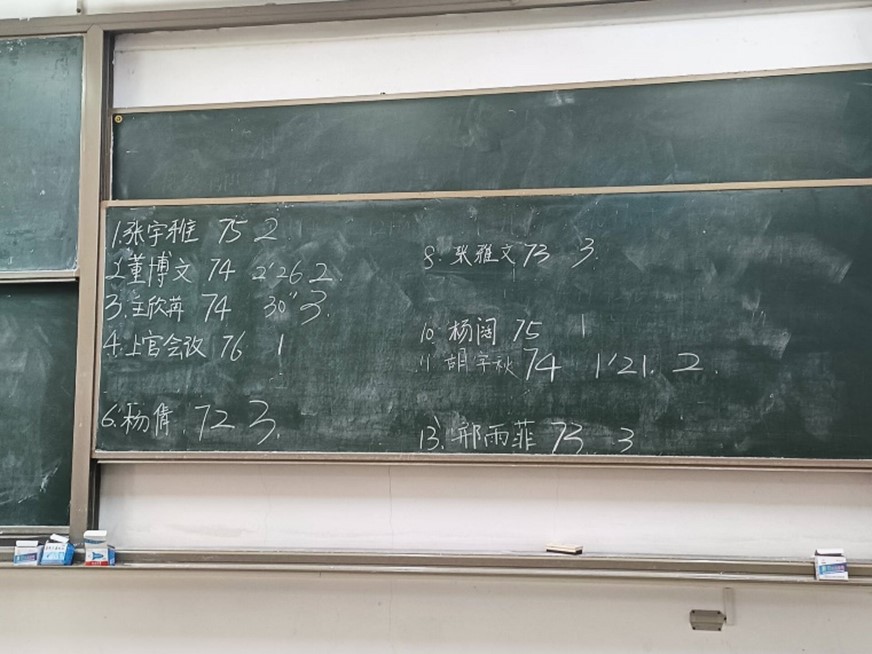 1.张宇雅 75 2
2.董博文 74 2'26 2.
3.王欣苒 74 30" 3.
4.上官会改 76 1
6.杨倩. 72 3.
8. 张雅文 73 3.
10. 杨阔 75 1
11 胡宇秋 74 1'21. 2.
13. 邢雨菲 73 3